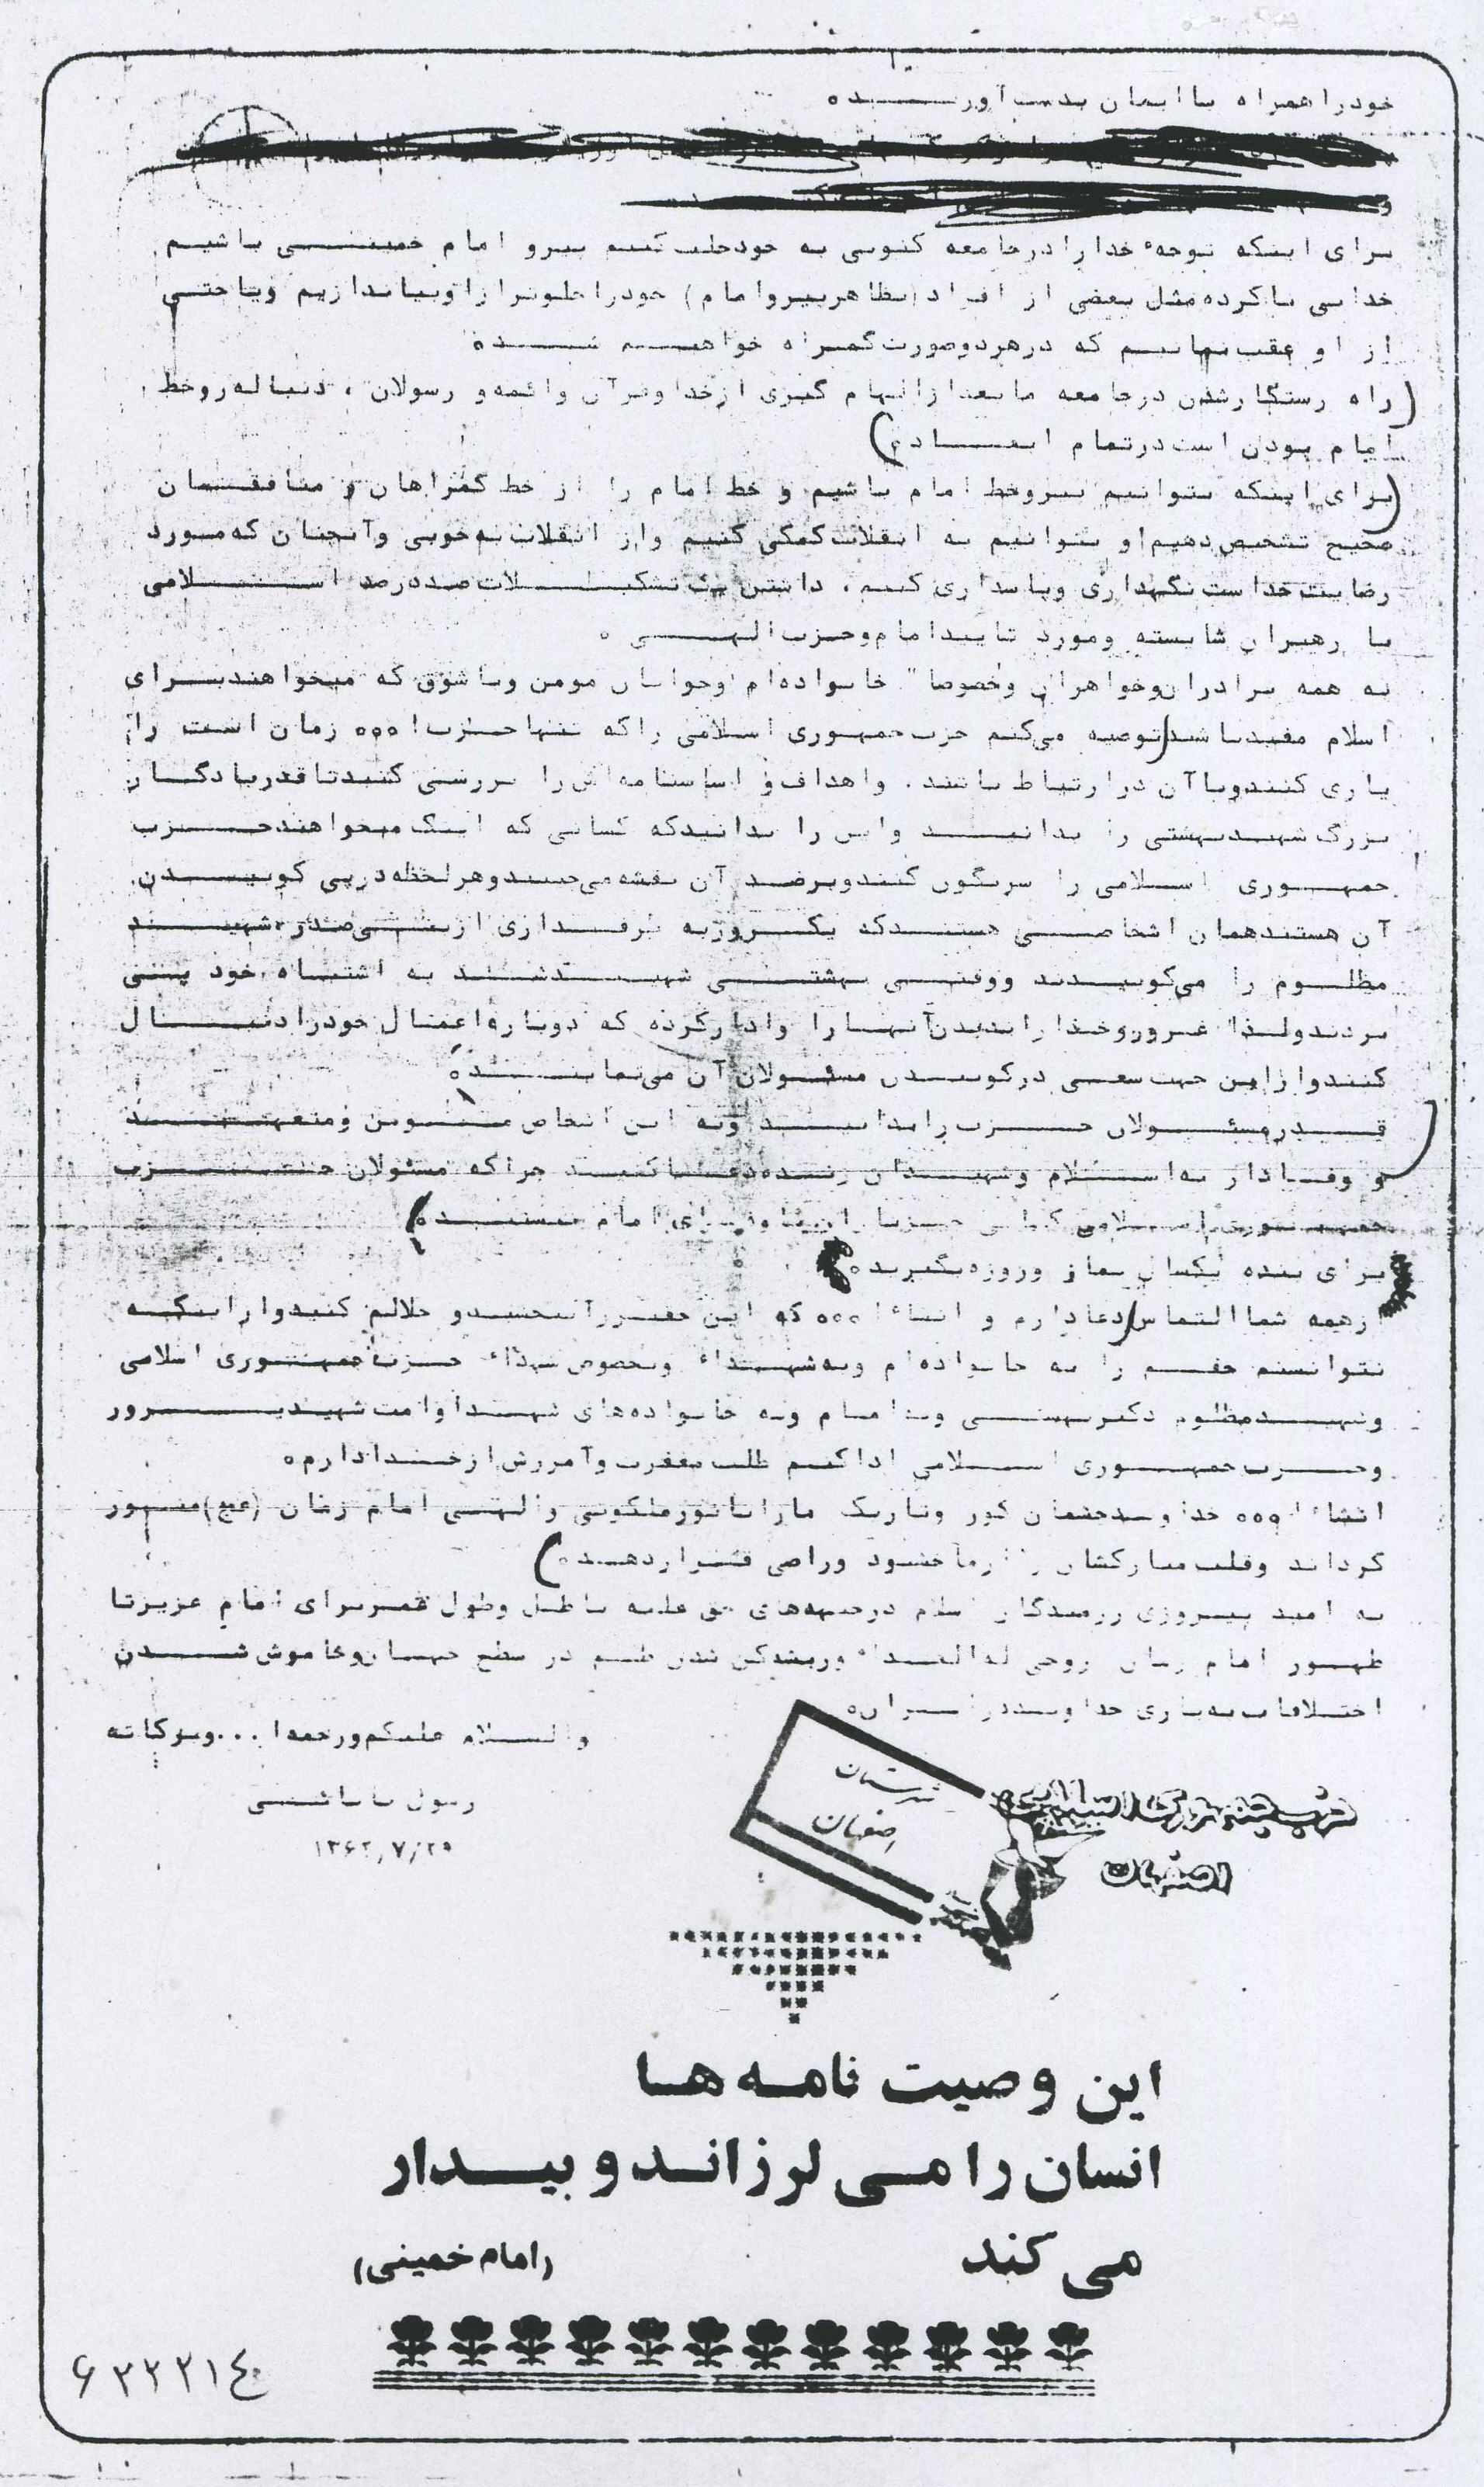 خود را همراه با ایمان بدست آورده
برای اینکه توجهء خدا را در جامعه کنونی به خود جلب کنیم پیرو امام خمینی باشیم
خدای ناکرده مثل بعضی از افراد (بظاهر پیرو امام) خود را جلوتر از او بیاندازیم و یا حتی
از او عقب بمانیم که در هر دو صورت گمراه خواهیم شده
(راه رستگار شدن در جامعه ما بعد از الهام گیری از خدا و قرآن و ائمه و رسولان ، دنباله رو خط
امام بودن است در تمام ابعاد ه)
(برای اینکه بتوانیم پیرو خط امام باشیم و خط امام را از خط گمراهان و منافقان
صحیح تشخیص دهیم و بتوانیم به انقلاب کمکی کنیم و از انقلاب به خوبی و آنچنان که مورد
رضایت خداست نگهداری و پاسداری کنیم ، داشتن یک تشکیلات صد در صد اسلامی
با رهبران شایسته و مورد تایید امام و حزب الهی ه
به همه برادران و خواهران و خصوصا" خانواده‌ام و جوانان مومن و با شوق که میخواهند برای
اسلام مفید باشند توصیه می‌کنم حزب جمهوری اسلامی را که تنها حزب ا ه ه ه زمان است را
یاری کنند و با آن در ارتباط باشند . و اهداف و اساسنامه‌اش را بررسی کنید تا قدر یادگار
بزرگ شهید بهشتی را بدانید و این را بدانید که کسانی که اینک میخواهند حزب
جمهوری اسلامی را سرنگون کنند و برضد آن نقشه می‌چینند و هر لحظه در پی کوبیدن
آن هستند همان اشخاصی هستند که یک روز به طرفداری از بنی‌صدر شهید
مظلوم را می‌کوبیدند و وقتی بهشتی شهید شد به اشتباه خود پی
بردند ولذا غرور و خدا را ندیدن آنها را وادار کرده که دوباره اعمال خود را دنبال
کنند و از این جهت سعی در کوبیدن مسئولان آن می‌نمایند ه
قدر مسئولان حزب را بدانید و به این اشخاص و متعهد
و وفادار به اسلام و شهیدان زنده دعا کنید چرا که مسئولان حزب
جمهوری اسلامی امام هستند ه)
برای بنده یکسال نماز و روزه بگیرید ه
از همه شما التماس دعا دارم و انشاء ا ه ه ه که این حقیر را ببخشید و حلالم کنید و از اینکه
نتوانستم حقم را به خانواده‌ام و به شهداء و بخصوص شهداء حزب جمهوری اسلامی
و شهید مظلوم دکتر بهشتی و به امام و به خانواده‌های شهدا و امت شهید پرور
و حزب جمهوری اسلامی ادا کنم طلب مغفرت و آمرزش از خدا دارم ه
انشاء ا ه ه ه خداوند چشمان کور و تاریک ما را با نور ملکوتی و الهی امام زمان (عج) منور
گرداند و قلب مبارکشان را از ما خشنود و راضی قرار دهد ه)
به امید پیروزی رزمندگان اسلام در جبهه‌های حق علیه باطل و طول عمر برای امام عزیز تا
ظهور امام زمان روحی له الفداء و ریشه‌کن شدن ظلم در سطح جهان و خاموش شدن
اختلافات به یاری خداوند در ایران ه
والسلام علیکم و رحمه ا ... و برکاته
رسول بابائی
۱۳۶۲/۷/۲۵
شهرستان
اصفهان
حزب جمهوری اسلامی
اصفهان
این وصیت نامه ها
انسان را می لرزاند و بیدار
می کند
(امام خمینی)
۶۲۲۲۱٤